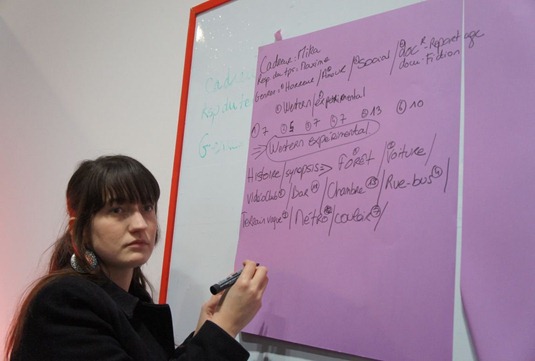 Cadeur: Mika
Resp. du tps: Maxime
Genres: Horreur / Amour / Social / doc - Reportage
docu. Fiction
Western / Expérimental
7 5 7 7 13 10
Western expérimental
Histoire / synopsis → Forêt / Voiture /
Vidéo club / Bar / Chambre / Rue-bus /
Terrain vague / Métro / couloir /
Cadeur
Resp du
Genre